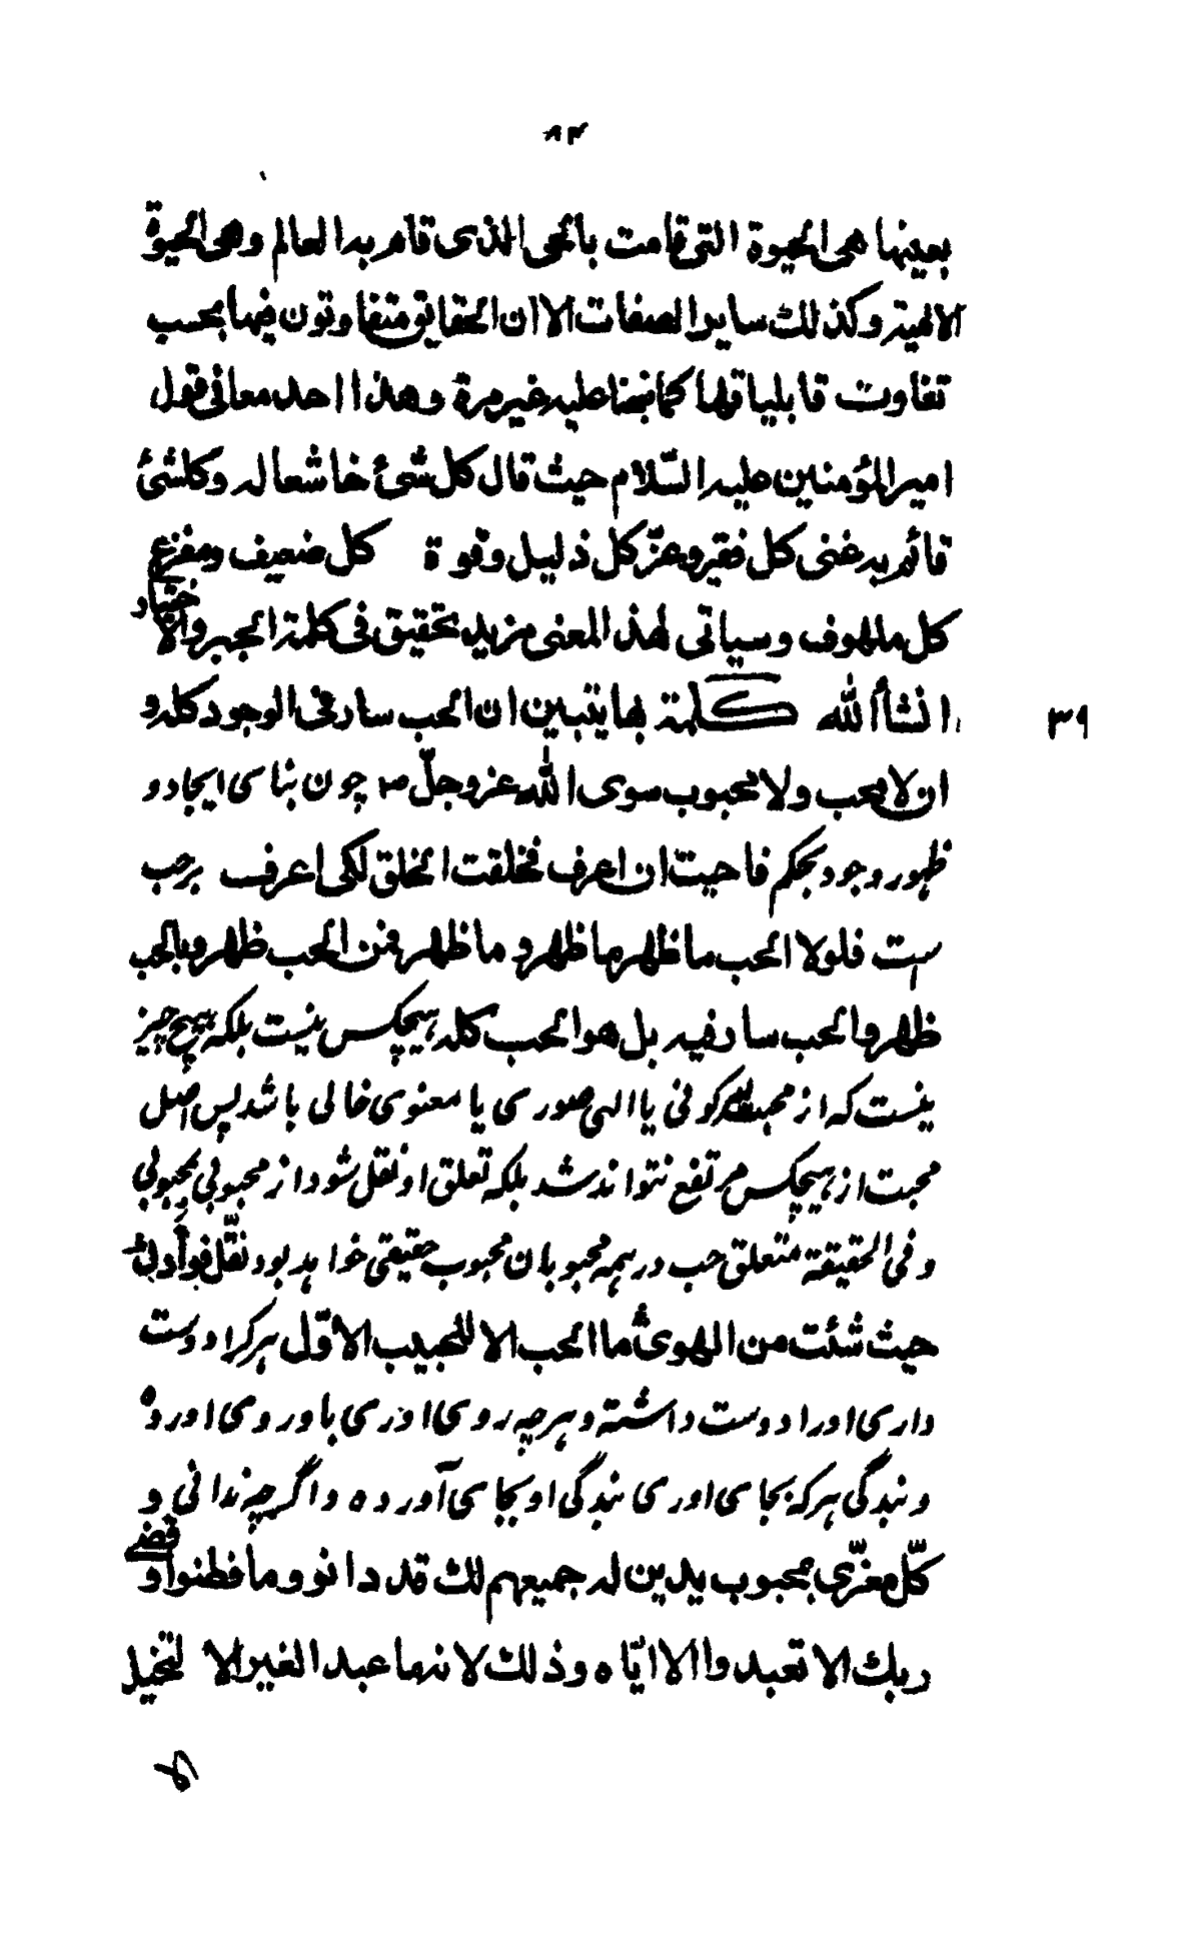 ٨٣
بعينها هى الحيوة التى قامت بالحى الذى قام به العالم وهى الحيوة
الالهية وكذلك ساير الصفات الا ان الحقايق متفاوتون فيها بحسب
تفاوت قابلياتها كما نبهنا عليه غير مرة وهذا احد معانى قول
امير المؤمنين عليه السّلام حيث قال كل شئ خاشعا له وكلشئ
قائم به غنى كل فقير وعزّ كل ذليل وقوة كل ضعيف ومفزع
كل ملهوف وسياتى لهذ المعنى مزيد تحقيق فى كلمة الجبر والاختيار
انشأالله كلمة بها يتبين ان الحب سار فى الوجود كله و
٣٩
ان لا محب ولا محبوب سوى الله عز وجلّ چون بناى ايجاد و
ظهور وجود بحكم فاحببت ان اعرف فخلقت الخلق لكى اعرف برحب
ست فلولا الحب ما ظهر ما ظهر و ما ظهر فمن الحب ظهر وبالحب
ظهر والحب سار فيه بل هو الحب كله هيچكس نيست بلكه هيچ چيز
نيست كه از محبت كونى يا الهى صورى يا معنوى خالى باشد پس اصل
محبت از هيچكس مرتفع نتواند شد بلكه تعلق او نقل شود از محبوبى بمحبوبى
و فى الحقيقة متعلق حب در همه محبوبان محبوب حقيقى خواهد بود نقّل فوأدك
حيث شئت من الهوىٰ ما الحب الا للحبيب الاوّل هركرا دوست
دارى اورا دوست داشته و هرچه روى اورى باو روى اورده
و بندگى هركه بجاى اورى بندگى او بجاى آورده و اگرچه ندانى و
كلّ مغرّى بمحبوب يدين له جميعهم لك قد دانو وما فطنوا وقضى
ربك الا تعبدوا الا ايّاه وذلك لانه ما عبد الغير الا لتخيل